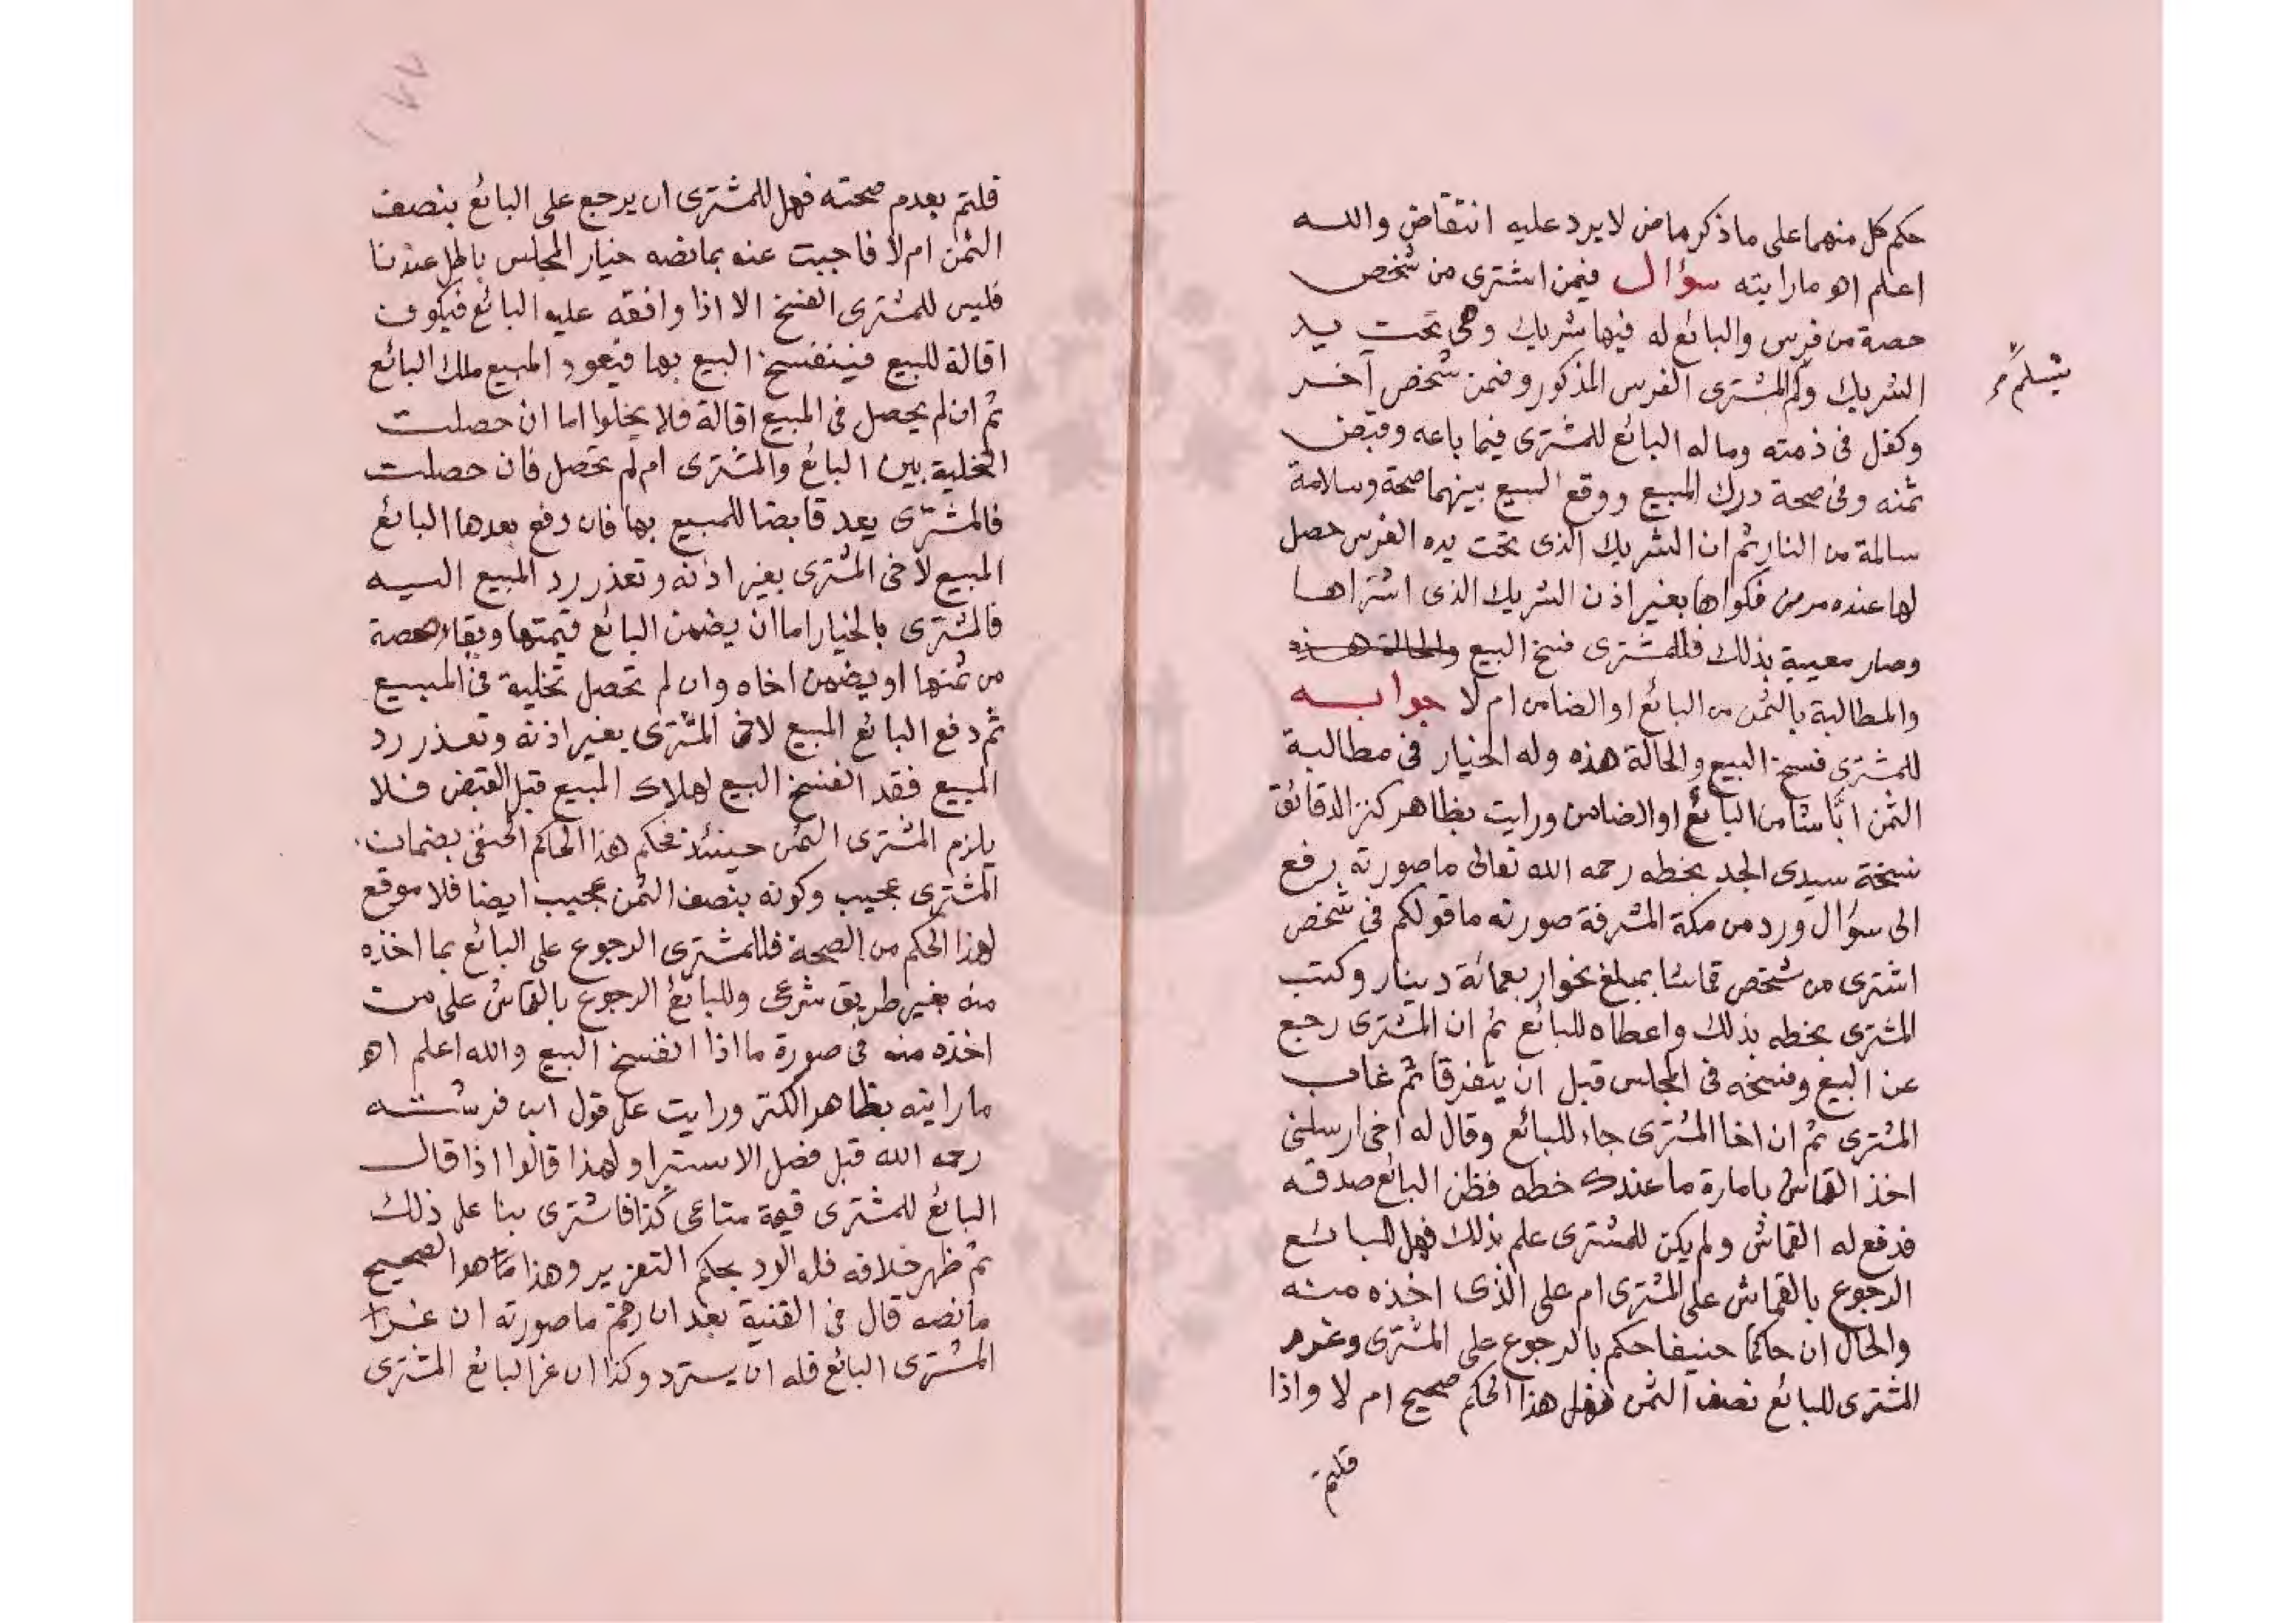 حكم كل منهما على ما ذكر ماض لا يرد عليه انتقاض والله
اعلم اهو ما رايته سؤال فيمن اشترى من شخص
حصة من فرس والبائع له فيها شريك وهى تحت يد
الشريك ولم المشترى الفرس المذكور وضمن شخص آخر
يتسلم
وكفل فى ذمته وماله البائع للمشترى فيما باعه وقبض
ثمنه وفى صحة درك المبيع ووقع البيع بينهما صحة وسلامة
سالمة من النار ثم ان الشريك الذى تحت يده الفرس حصل
لها عنده مرض فكواها بغير اذن الشريك الذى اشتراها
وصار معيبة بذلك فللمشترى فسخ البيع والحالة هذه
والمطالبة بالثمن من البائع او الضامن ام لا جوابه
للمشترى فسخ البيع والحالة هذه وله الخيار فى مطالبة
الثمن ايا شا من البائع او الضامن ورايت بظاهر كنز الدقائق
نسخة سيدى الجد بخطه رحمه الله تعالى ما صورته رفع
الى سؤال ورد من مكة المشرفة صورته ما قولكم فى شخص
اشترى من شخص قماشا بمبلغ نحو اربعمائة دينار وكتب
المشترى بخطه بذلك واعطاه للبائع ثم ان المشترى رجع
عن البيع وفسخه فى المجلس قبل ان يتفرقا ثم غاب
المشترى ثم ان اخا المشترى جاء للبائع وقال له اخى ارسلنى
اخذ القماش بامارة ما عندك خطه فظن البائع صدقه
فدفع له القماش ولم يكن للمشترى علم بذلك فهل للبائع
الرجوع بالقماش على المشترى ام على الذى اخذه منه
والحال ان حاكما حنيفا حكم بالرجوع على المشترى وغرم
المشترى للبائع نصف الثمن فهل هذا الحكم صحيح ام لا واذا
قلتم
١٧٧
قلتم بعدم صحته فهل للمشترى ان يرجع على البائع بنصف
الثمن ام لا فاجبت عنه بما نصه خيار المجلس باطل عندنا
فليس للمشترى الفسخ الا اذا وافقه عليه البائع فيكون
اقالة للبيع فينفسخ البيع بها فيعود المبيع ملك البائع
ثم ان لم يحصل فى المبيع اقالة فلا يخلوا اما ان حصلت
التخلية بين البائع والمشترى ام لم تحصل فان حصلت
فالمشترى يعد قابضا للمبيع بها فان دفع بعدها البائع
المبيع لاخى المشترى بغير اذنه وتعذر رد المبيع اليه
فالمشترى بالخيار اما ان يضمن البائع قيمتها وبقاء حصة
من ثمنها او يضمن اخاه وان لم تحصل تخلية فى المبيع
ثم دفع البائع المبيع لاخ المشترى بغير اذنه وتعذر رد
المبيع فقد انفسخ البيع لهلاك المبيع قبل القبض فلا
يلزم المشترى الثمن حينئذ فحكم هذا الحاكم الحنفى بضمان
المشترى عجيب وكونه بنصف الثمن عجيب ايضا فلا موقع
لهذا الحكم من الصحة فللمشترى الرجوع على البائع بما اخذه
منه بغير طريق شرعى وللبائع الرجوع بالقماش على من
اخذه منه فى صورة ما اذا انفسخ البيع والله اعلم اهو
ما رايته بظاهر الكنز ورايت على قول ابن فرشته
رحمه الله قبل فصل الاستبرا ولهذا قالوا اذا قال
البائع للمشترى قيمة متاعى كذا فاشترى بنا على ذلك
ثم ظهر خلافه فله الرد بحكم التغرير وهذا هو الصحيح
ما نصه قال فى القنية بعد ان رحم ما صورته ان غر
المشترى البائع فله ان يسترد وكذا ان غر البائع المشترى